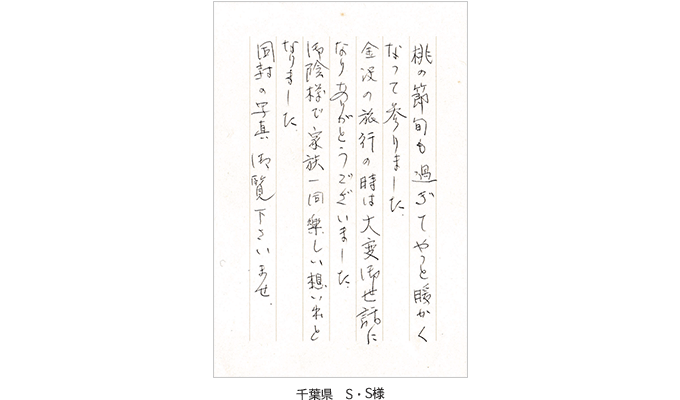 桃の節旬も過ぎてやっと暖かく
なって参りました。
金沢の旅行の時は大変御世話に
なりありがとうございました。
御陰様で家族一同楽しい想い出と
なりました。
同封の写真御覧下さいませ。
千葉県　S・S様